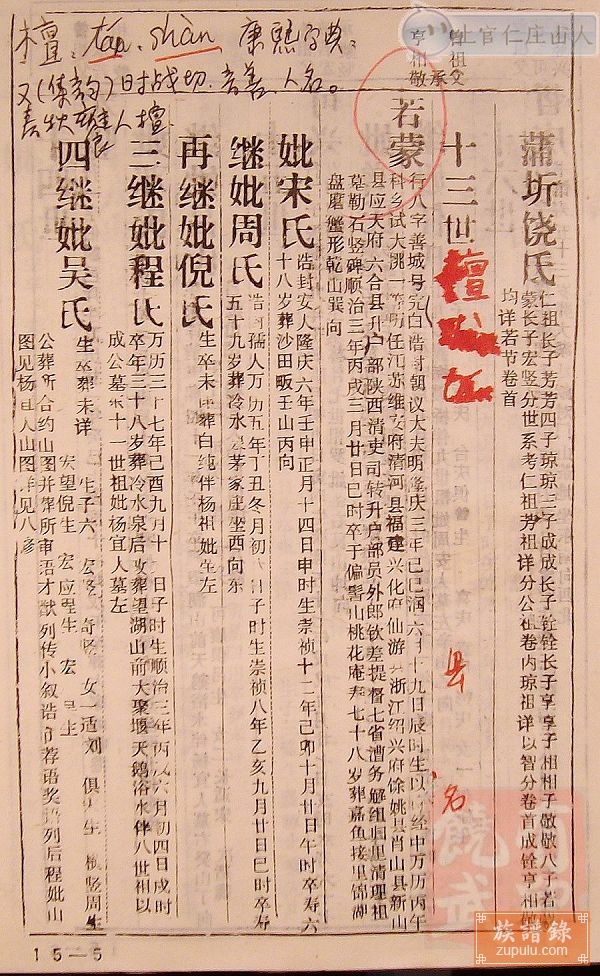 檀 tan, shàn, 康熙字典:
又(集韵)时战切 音善 人名。
上官仁庄山人
曾祖 亨
祖 相
父 敬
承
蒲圻饶氏
仁祖长子芳芳四子琼琼三子成成长子铨铨长子亨亨子相相子敬敬八子若
蒙长子宏竖分世系考仁祖芳祖详分公祖卷内琼祖详以智分卷首成铨亨相敬
均详若节卷首
十三世
檀
县名
若蒙
行八字善城号完白诰封朝议大夫明隆庆三年己巳润六月十九日辰时生以
经中万历丙午
科乡试大挑一等
任江苏维安府清河县福建兴化府仙游
浙江绍兴府馀姚县肖山县新山
县应天府六合县升户部陕西清吏司转升户部员外郎钦差提督七省漕务解组归里清理祖
墓勒石竖碑顺治三年丙戌三月廿日巳时卒于偏髻山桃花庵寿七十八岁葬嘉鱼接里锦湖
盘磨蟹形乾山巽向
妣宋氏
诰封安人隆庆六年壬申正月十四日申时生崇祯十二年己卯十月廿日午时卒寿六
十八岁葬沙田畈壬山丙向
继妣周氏
孺人万历五年丁丑冬月初
日子时生崇祯八年乙亥九月廿日巳时卒寿
五十九岁葬冷水
茅家庄坐西向东
再继妣倪氏
生卒未详葬白纯伴杨祖妣
左
三继妣程氏
万历三十七年己酉九月十
日子时生顺治三年丙戌六月初四日戌时
卒年三十八岁葬冷水泉后改葬望湖山前大聚堰天鹅浴水伴八世祖以
成公墓东十一世祖妣杨宜人墓左
四继妣吴氏
生卒葬未详
生子六
女一适刘
宏望倪生
宏应程生
公葬所合约山图并葬所审语才猷列传小叙诰
荐语奖
列后程妣山
图见杨宜人山图详见八修
15—5
族譜錄
zupulu.com